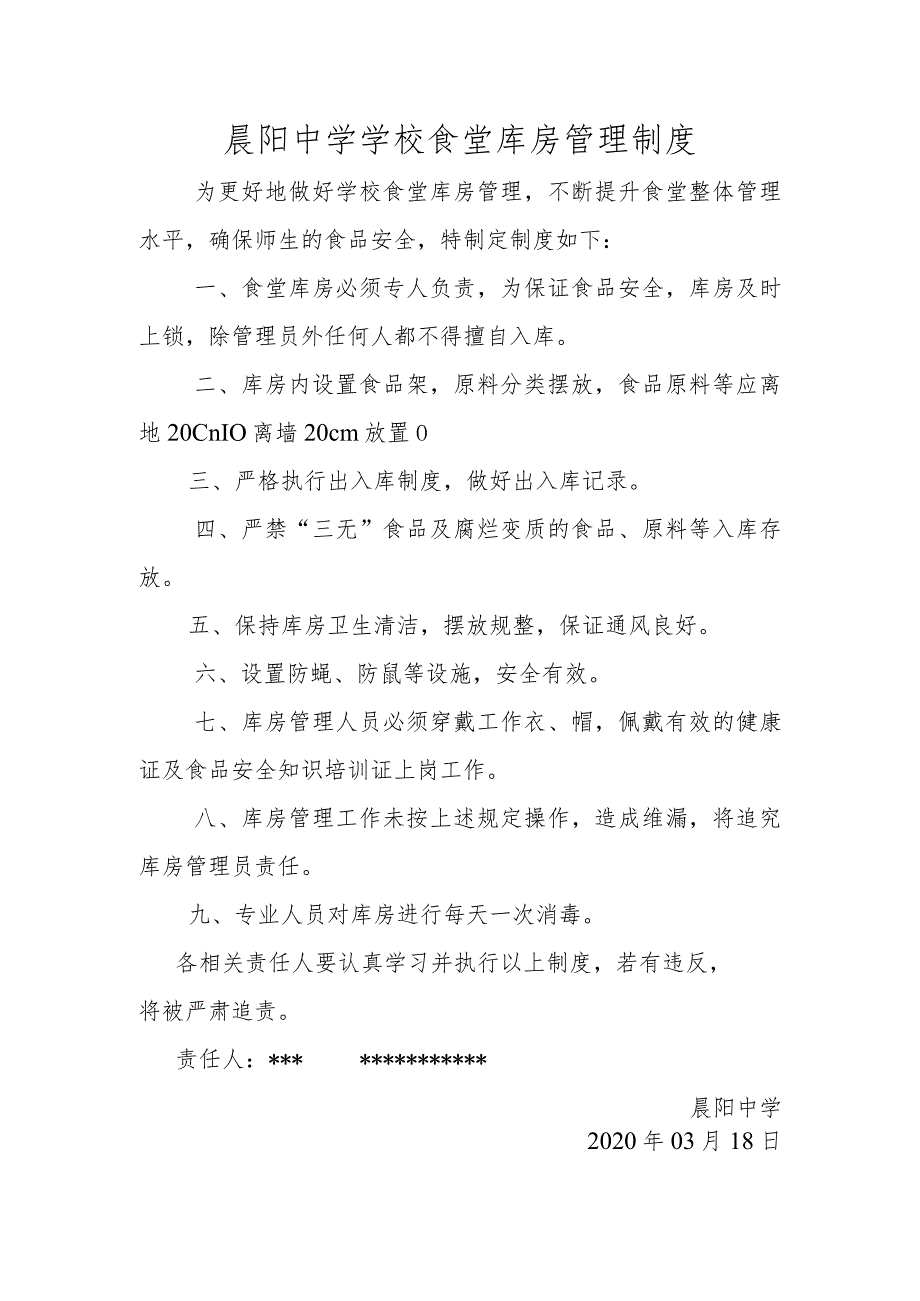 晨阳中学学校食堂库房管理制度
为更好地做好学校食堂库房管理，不断提升食堂整体管理
水平，确保师生的食品安全，特制定制度如下：
一、食堂库房必须专人负责，为保证食品安全，库房及时
上锁，除管理员外任何人都不得擅自入库。
二、库房内设置食品架，原料分类摆放，食品原料等应离
地 20CnIO 离墙 20cm 放置 0
三、严格执行出入库制度，做好出入库记录。
四、严禁“三无”食品及腐烂变质的食品、原料等入库存
放。
五、保持库房卫生清洁，摆放规整，保证通风良好。
六、设置防蝇、防鼠等设施，安全有效。
七、库房管理人员必须穿戴工作衣、帽，佩戴有效的健康
证及食品安全知识培训证上岗工作。
八、库房管理工作未按上述规定操作，造成维漏，将追究
库房管理员责任。
九、专业人员对库房进行每天一次消毒。
各相关责任人要认真学习并执行以上制度，若有违反，
将被严肃追责。
责任人：*** ***********
晨阳中学
2020 年 03 月 18 日